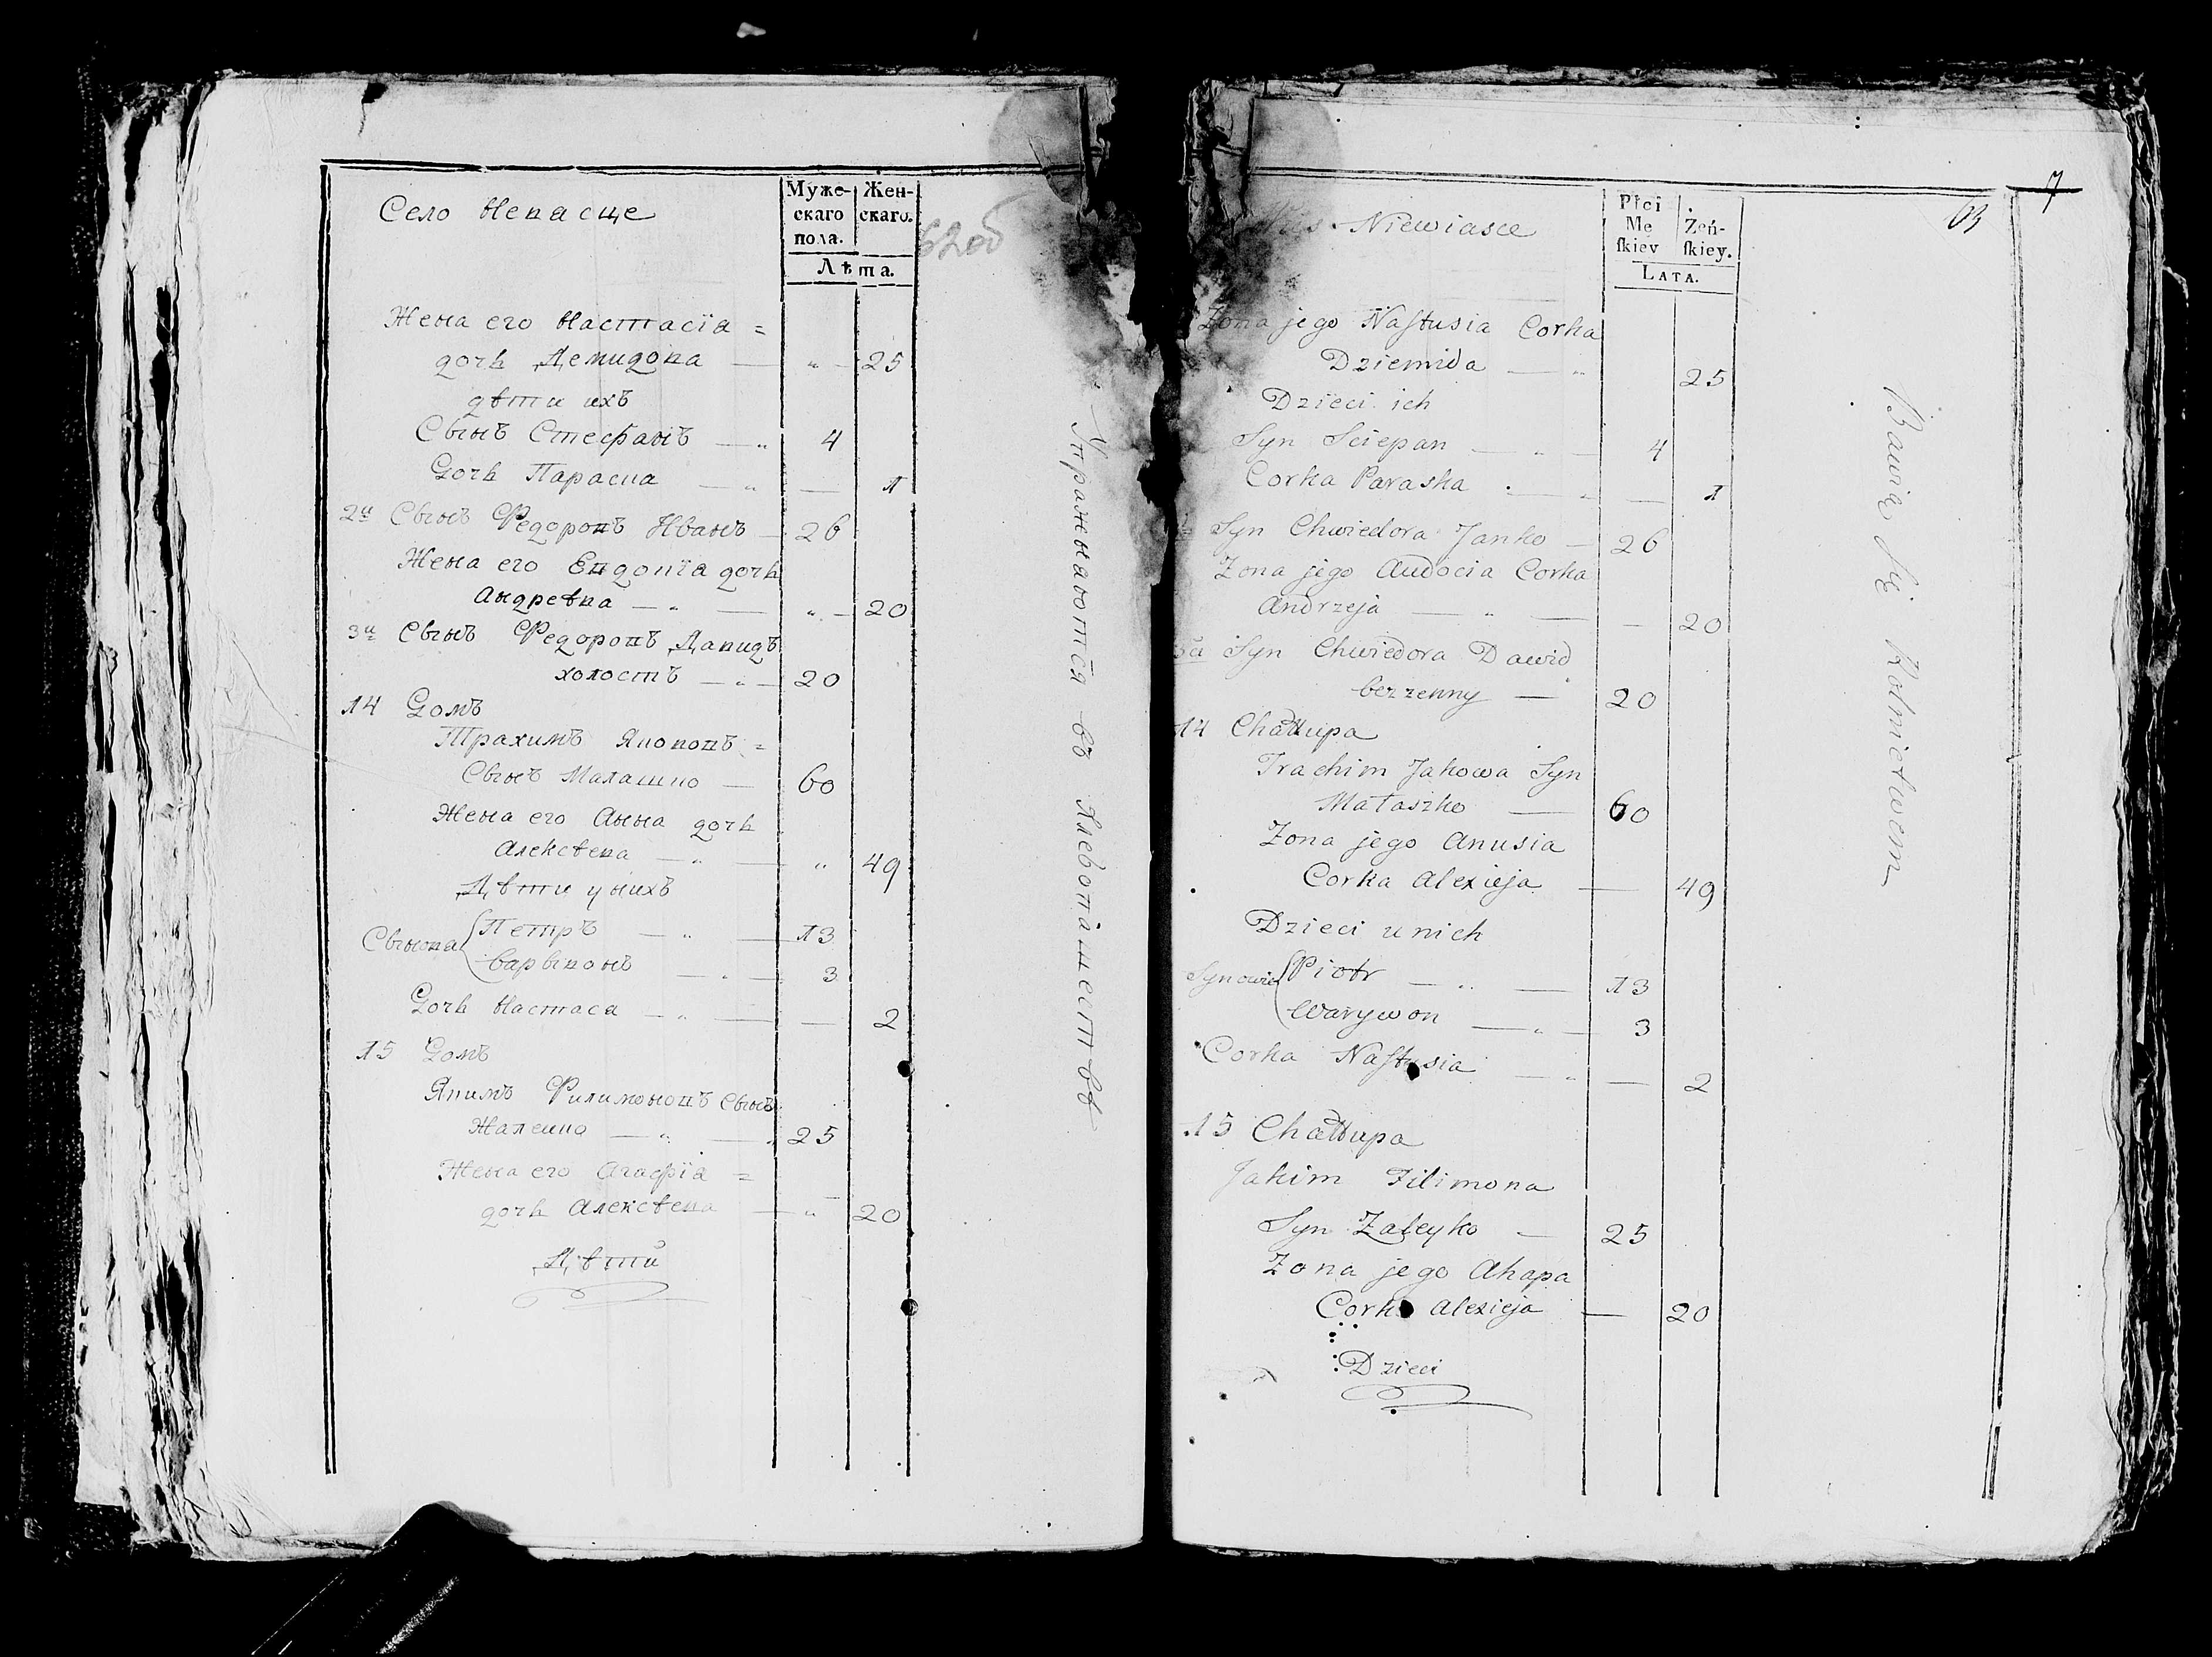 Село Невасце
Муже-
скаго
пола.
Жен-
скаго.
Лѣта.
62об
Жена его Настасїа =
дочь Демидова — „ — 25
дѣти ихъ
Сынъ Стефанъ — „ 4
Дочь Параска — „ — 1
2й Сынъ Федоровъ Иванъ — 26
Жена его Евдокїа дочь
Андреѣва — „ — „ — 20
3й Сынъ Федоровъ Давидъ
холостъ — „ — 20
14 Домъ
Трахимъ Якововъ =
Сынъ Малашко — 60
Жена его Анна дочь
Алексѣева — „ — „ 49
Дѣти у нихъ
Сынова Петръ — „ — 13
Варывонъ — „ — 3
Дочь Настаса — „ — — 2
15 Домъ
Якимъ Филимоновъ Сынъ
Жалейко — „ — „ 25
Жена его Агафїа =
дочь Алексѣева — „ 20
Дѣти
Упражнаются въ Хлебопашестве
Niewiasce
Płci
Me
skiey
Żeń-
skiey.
LATA.
63
7
Zona jego Nastusia Corka
Dziemida — „ 25
Dzieci ich
Syn Sciepan — „ — 4
Corka Paraska — „ — 1
Syn Chwiedora Janko — 26
Zona jego Audocia Corka
Andrzeja — „ — — 20
3й Syn Chwiedora Dawid
bezzenny — „ 20
14 Chałłupa
Trachim Jakowa Syn
Małaszko — 60
Zona jego Anusia
Corka Alexieja — 49
Dzieci u nich
Synowie Piotr — „ — 13
Warywon — „ — 3
Corka Nastusia — „ — 2
15 Chałłupa
Jakim Filimona
Syn Zaleyko — 25
Zona jego Ahapa
Corka Alexieja — 20
Dzieci
Bawią Się Rolnictwem